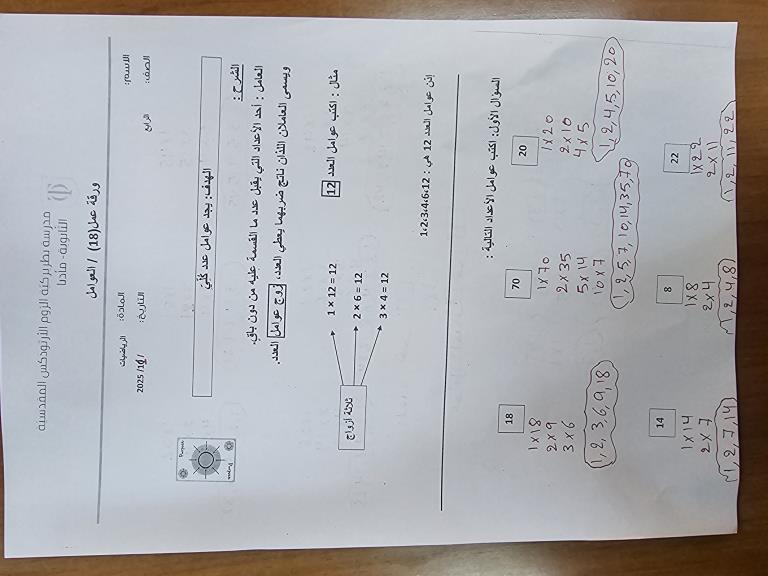 مدرسة بطريركية الروم الأرثوذكس المقدسية
الثانوية- مادبا
ورقة عمل(18) / العوامل
الاسم:
المادة: الرياضيات
الصف: الرابع
التاريخ: /11/ 2025
الهدف: يجد عوامل عدد كلي
الشرح :
العامل : أحد الأعداد التي يقبل عدد ما القسمة عليه من دون باقٍ.
ويسمى العاملان اللذان ناتج ضربهما يعطي العدد، زوج عوامل العدد.
مثال : اكتب عوامل العدد 12
1 × 12 = 12
2 × 6 = 12
3 × 4 = 12
ثلاثة أزواج
إذن عوامل العدد 12 هي : 1،2،3،4،6،12
السؤال الأول: اكتب عوامل الأعداد التالية :
20
1 x 20
2 x 10
4 x 5
1, 2, 4, 5, 10, 20
70
1 x 70
2 x 35
5 x 14
10 x 7
1, 2, 5, 7, 10, 14, 35, 70
18
1 x 18
2 x 9
3 x 6
1, 2, 3, 6, 9, 18
22
1 x 22
2 x 11
1, 2, 11, 22
8
1 x 8
2 x 4
1, 2, 4, 8
14
1 x 14
2 x 7
1, 2, 7, 14